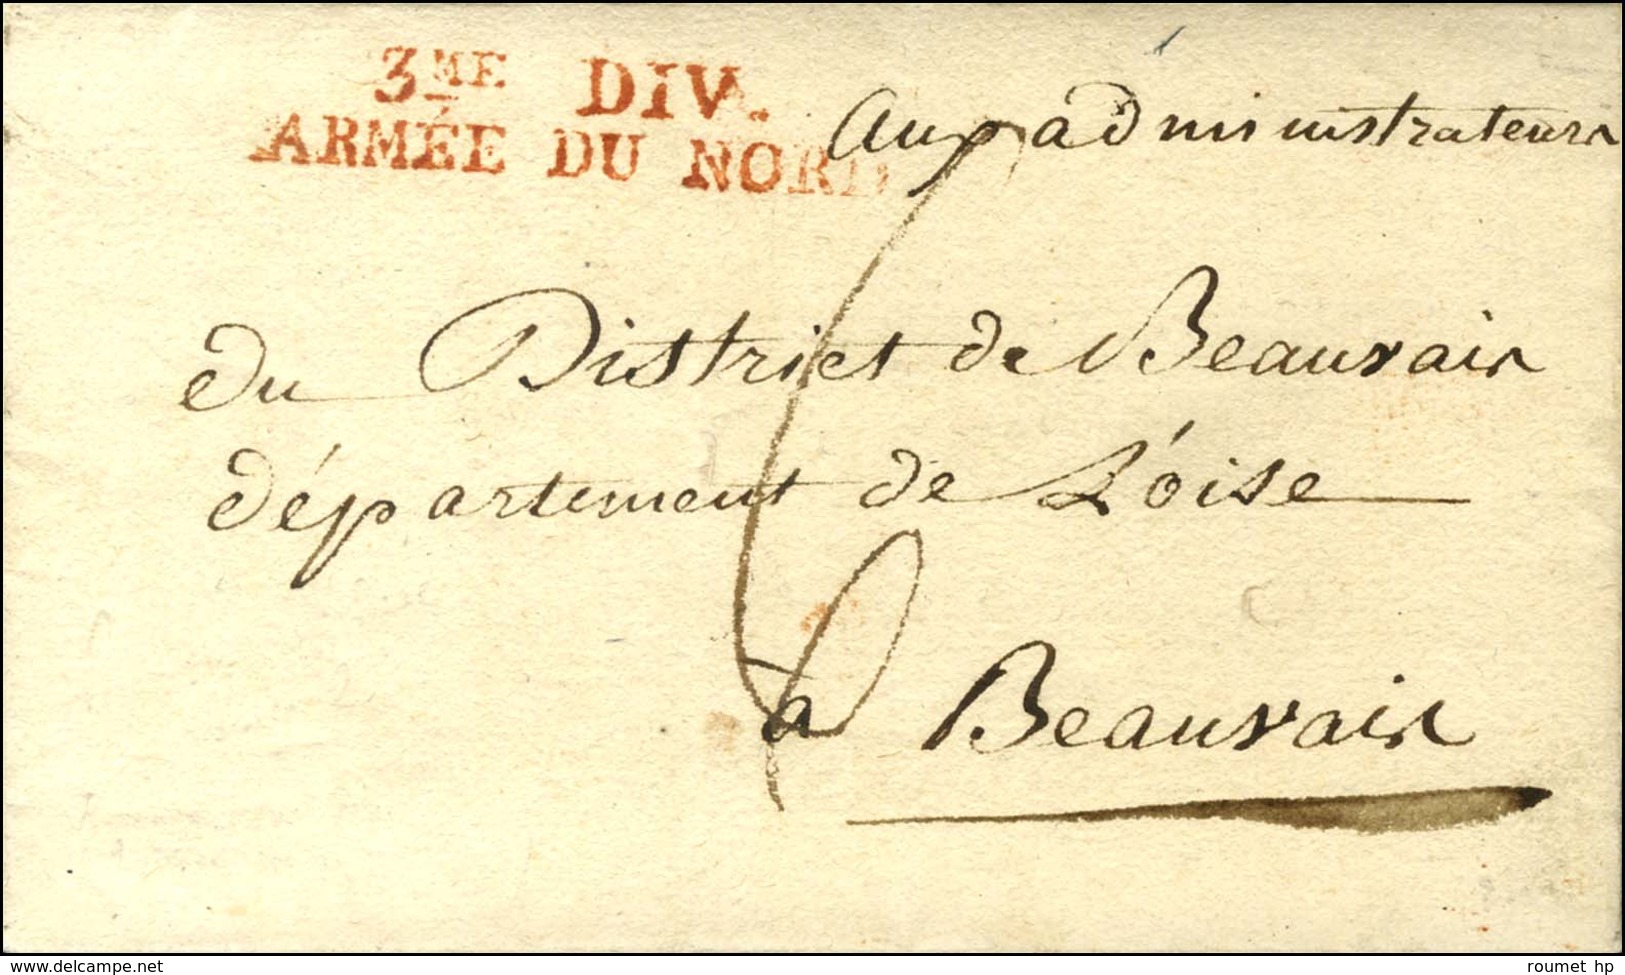 3ME DIV.
ARMÉE DU NORD
aux administrateurs
du District de Beauvais
département de L'óise
6
à Beauvais
www.delcampe.net
roumet hp